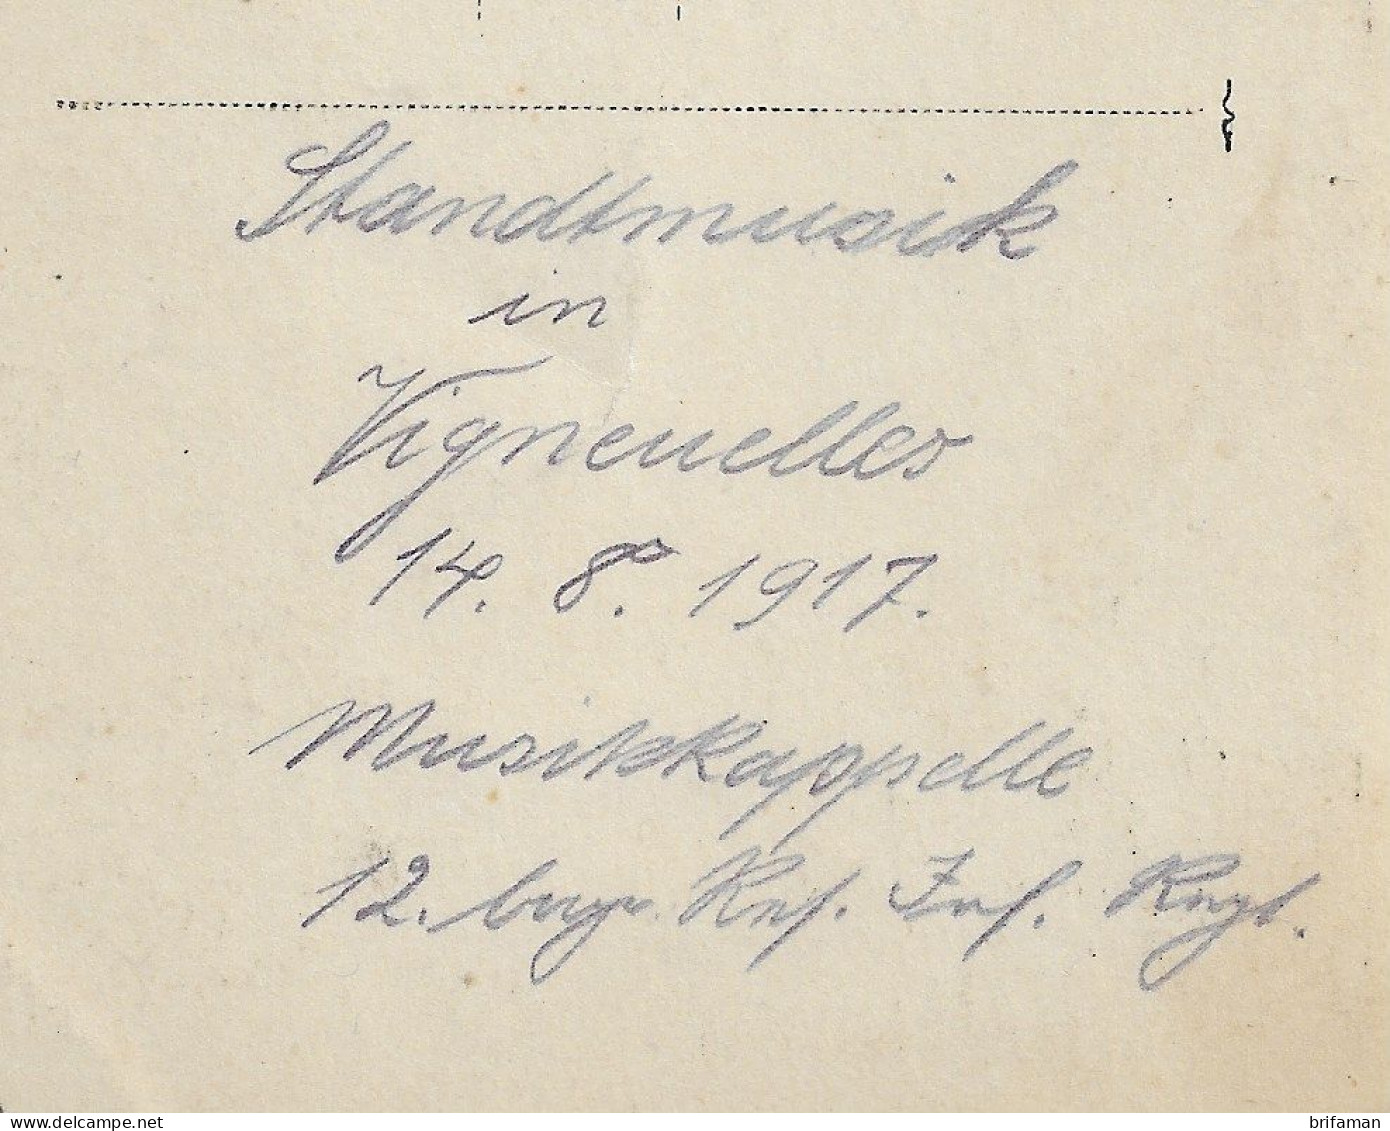 Standtmusik
in
Vigneuelles
14. 8. 1917.
Musikkappelle
12. bayr. Res. Inf. Regt.
www.delcampe.net
brifaman